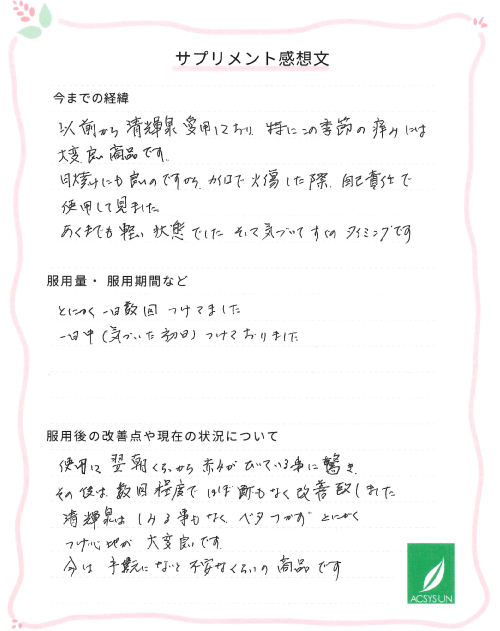 サプリメント感想文
今までの経緯
以前から清輝泉愛用しており、特にこの季節の痒みには
大変良い商品です。
日焼けにも良いのですから、カイロで火傷した際、自己責任で
使用して見ました
あくまでも軽い状態でした そして気づいてすぐのタイミングです
服用量・服用期間など
とにかく一日数回 つけてました
一日中(気づいた初日)つけておりました
服用後の改善点や現在の状況について
使用して翌朝くらいから赤みがひいている事に驚き、
その後は、数回程度でほぼ跡もなく改善致しました
清輝泉はしみる事もなく、ベタつかず とにかく
つけ心地が 大変良いです。
今は 手元にないと不安なくらいの商品です
ACSYSUN